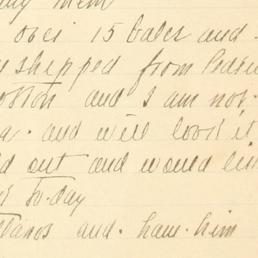 them
over 15 bales and
shipped from
and I am not
a. and will look it
out and would
to-day
and. have. him